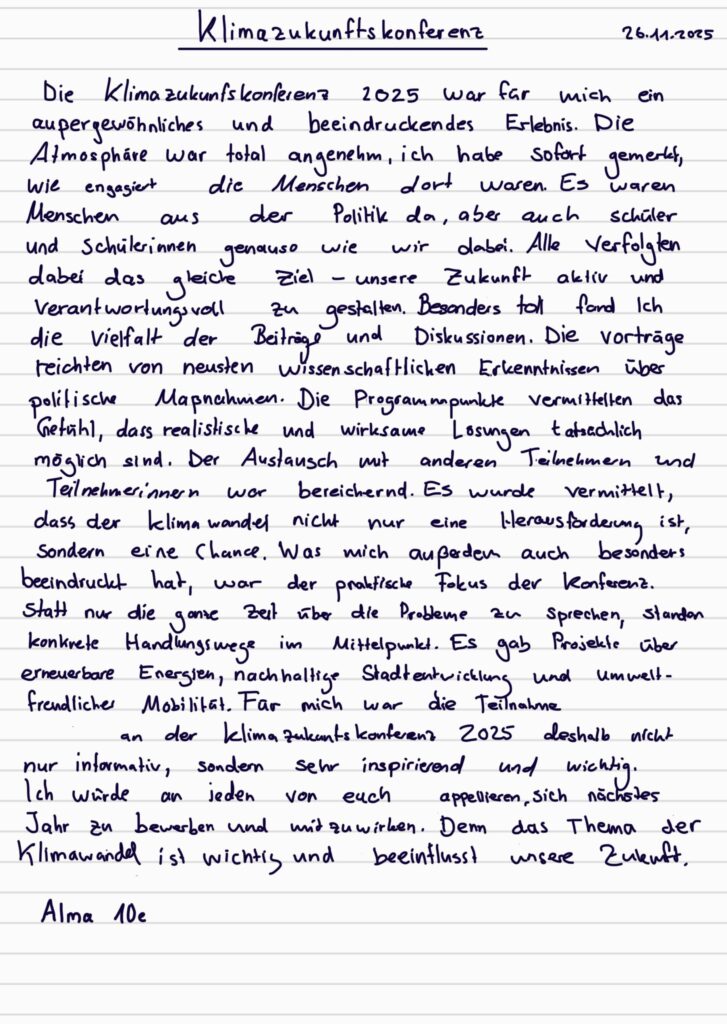 Klimazukunftskonferenz
26.11.2025
Die Klimazukunfskonferenz 2025 war für mich ein
außergewöhnliches und beeindruckendes Erlebnis. Die
Atmosphäre war total angenehm, ich habe sofort gemerkt,
wie engagiert die Menschen dort waren. Es waren
Menschen aus der Politik da, aber auch schüler
und Schülerinnen genauso wie wir dabei. Alle verfolgten
dabei das gleiche Ziel – unsere Zukunft aktiv und
verantwortungsvoll zu gestalten. Besonders toll fand Ich
die vielfalt der Beiträge und Diskussionen. Die vorträge
reichten von neusten wissenschaftlichen Erkenntnissen über
politische Maßnahmen. Die Programmpunkte vermittelten das
Gefühl, dass realistische und wirksame Lösungen tatsächlich
möglich sind. Der Austausch mit anderen Teilnehmern und
Teilnehmerinnern war bereichernd. Es wurde vermittelt,
dass der klimawandel nicht nur eine Herausforderung ist,
sondern eine Chance. Was mich außerdem auch besonders
beeindruckt hat, war der praktische Fokus der Konferenz.
Statt nur die ganze Zeit über die Probleme zu sprechen, standen
konkrete Handlungswege im Mittelpunkt. Es gab Projekte über
erneuerbare Energien, nachhaltige Stadtentwicklung und umwelt-
freundlicher Mobilität. Für mich war die Teilnahme
an der klimazukunftskonferenz 2025 deshalb nicht
nur informativ, sondern sehr inspirierend und wichtig.
Ich würde an jeden von euch appellieren, sich nächstes
Jahr zu bewerben und mitzuwirken. Denn das Thema der
Klimawandel ist wichtig und beeinflusst unsere Zukunft.
Alma 10e